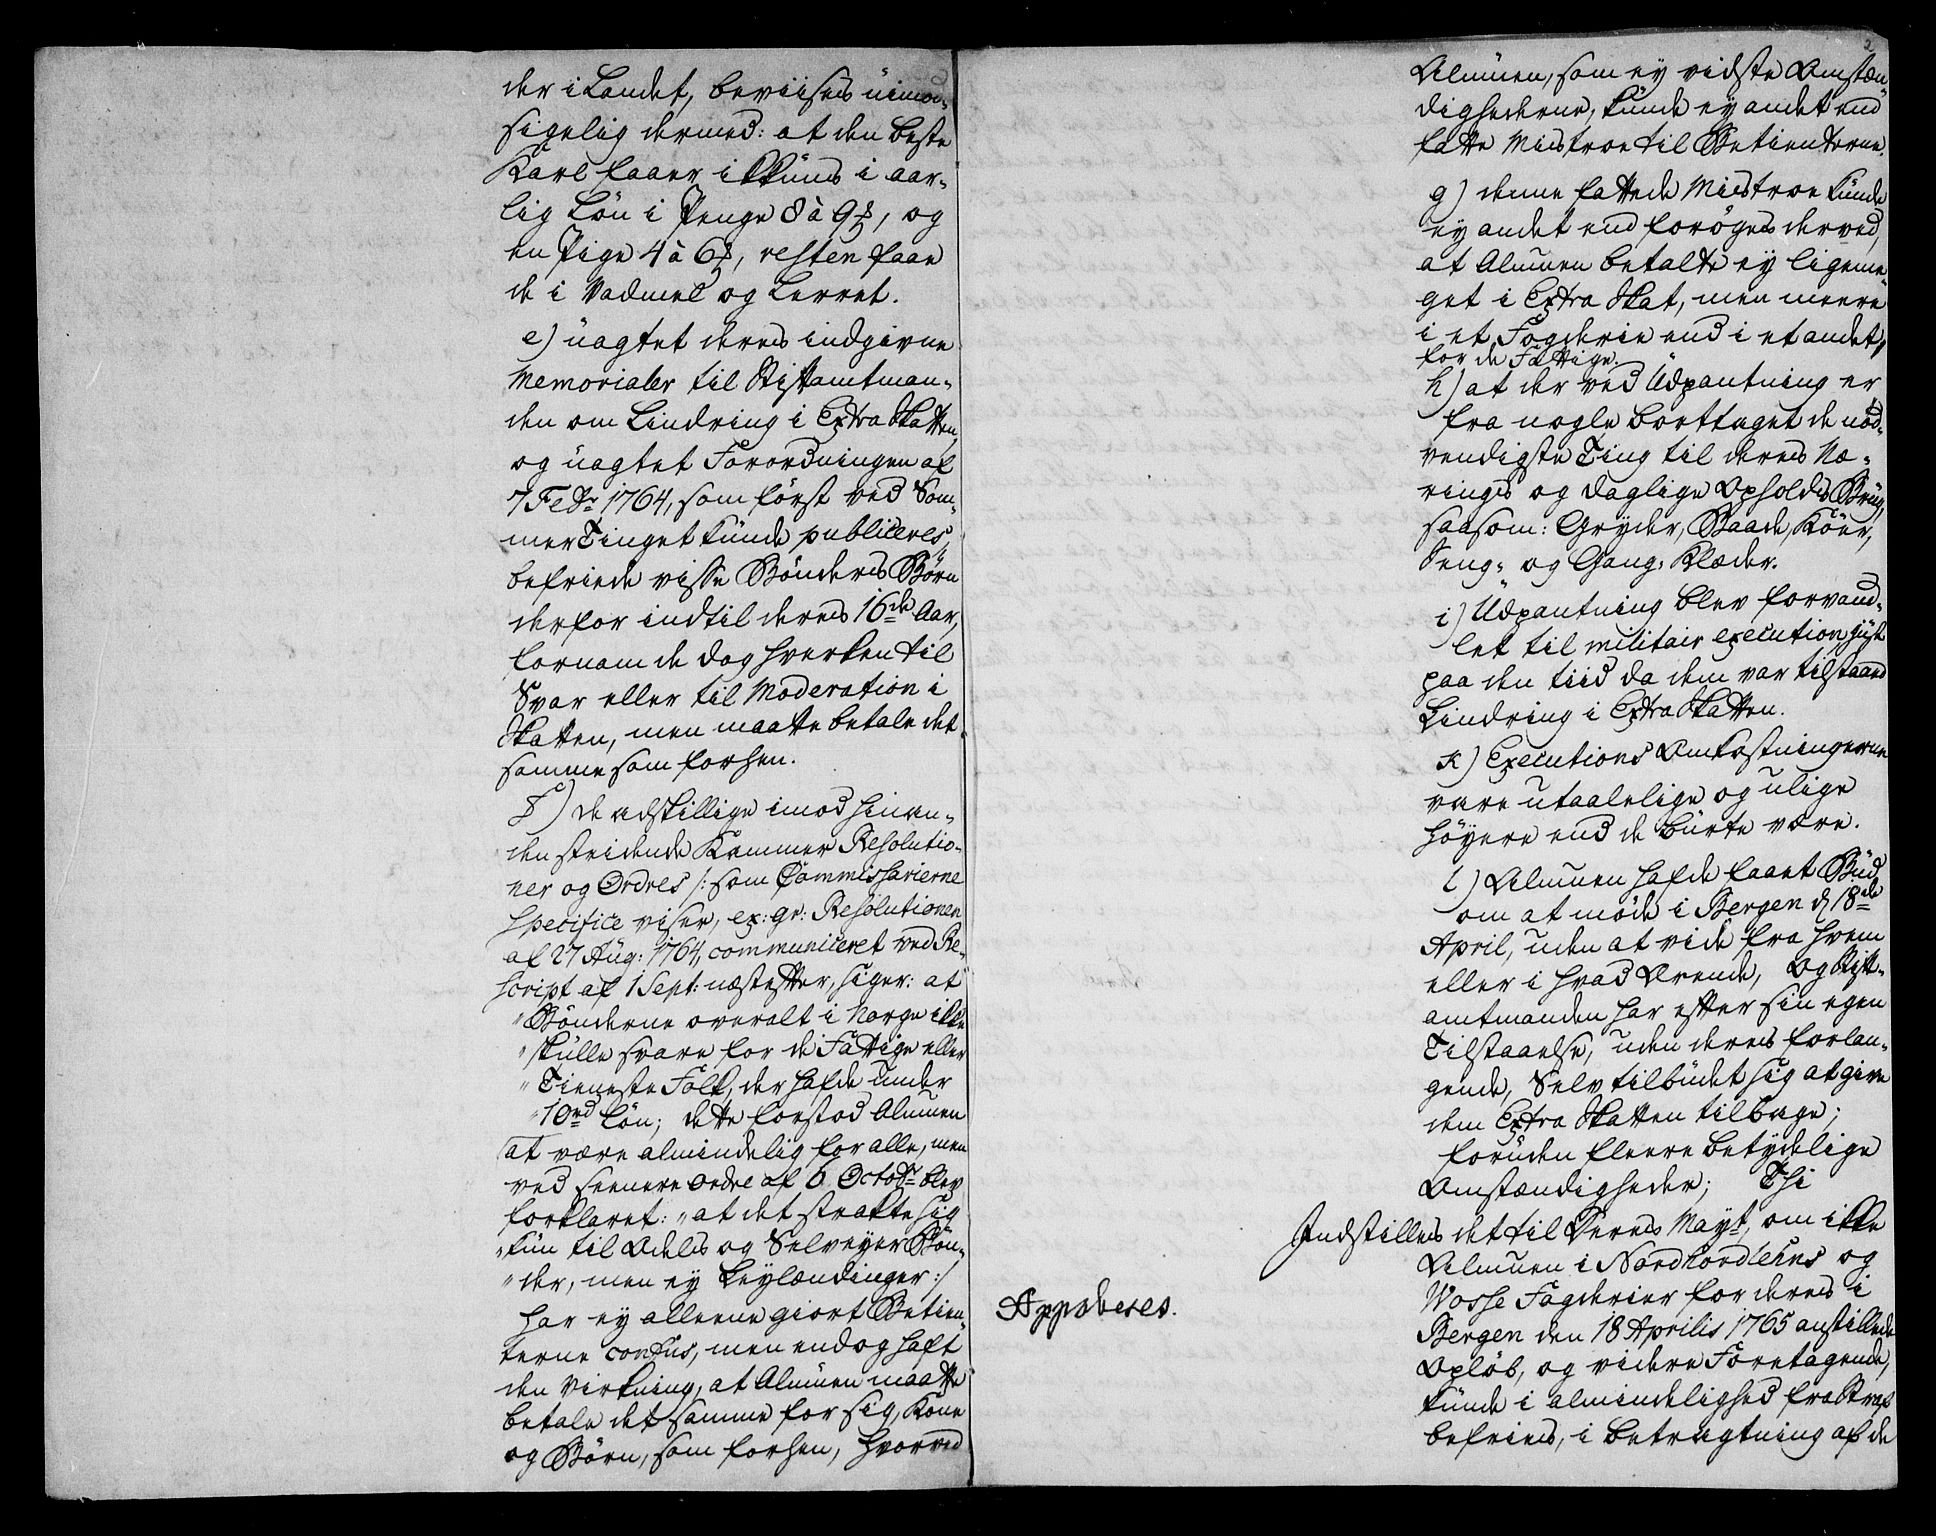 der i Landet, beviises uimod-
sigelig dermed: at den beste
Karl faaer ikkuns i aar-
lig Løn i Penge 8 à 9 rd, og
en Pige 4 à 6 rd, resten faae
de i Vadmel og Lerret.
e) uagtet deres indgivne
Memorialer til Stiftamtman-
den om Lindring i Extra Skatten,
og uagtet Forordningen af
7 Febr. 1764, som først ved Som-
mer Tinget kunde publiceres,
befriede visse Bønders Børn
derfor indtil deres 16de Aar,
fornam de dog hverken til
Svar eller til Moderation i
Skatten, men maatte betale det
samme som forhen.
f) De adskillige imod hinan-
den stridende Kammer Resolutio-
ner og Ordres /: som Commissarierne
specifice viser, ex: gr: Resolutionen
af 27 Aug: 1764, communiceret ved Re-
script af 1 Sept: næstefter, siger: at
"Bønderne overalt i Norge ikke
"skulle svare for de Fattige eller
"Tieneste Folk, der hafde under
"10 rd Løn; dette forstod Almuen
at være almindelig for alle, men
ved seenere Ordre af 6 Octobr blev
forklaret: "at det strakte sig
"kun til Odels og Selveyer Bøn-
"der, men ey Leylændinger :/
har ey alleene giort Betien-
terne confus, men endog haft
den Virkning, at Almuen maatte
betale det samme for sig, Kone
og Børn, som forhen, hvorved
2
Almuen, som ey vidste Omstæn-
dighederne, kunde ey andet end
fatte Mistroe til Betienterne.
g) denne fattede Mistroe kunde
ey andet end forøges derved,
at Almuen betalte ey ligeme-
get i Extra Skat, men meere
i et Fogderie end i et andet,
for de Fattige.
h) at der ved Udpantning er
fra nogle borttaget de nød-
vendigste Ting til deres Næ-
rings og daglige Opholds Brug,
saasom: Gryder, Baade, Køer,
Seng- og Gang-Klæder.
i) Udpantning blev forvand-
let til militair execution just
paa den tiid da dem var tilstaaed
Lindring i Extra Skatten.
k) Executions Omkostningerne
vare utaalelige og ulige
høyere end de burte være.
l) Almuen hafde faaet Bud
om at møde i Bergen d 18de
April, uden at vide fra hvem
eller i hvad Ærende, og Stift-
amtmanden har efter sin egen
Tilstaaelse, uden deres forlan-
gende, Selv tilbudet sig at give
dem Extra Skatten tilbage;
foruden fleere betydelige
Omstændigheder; Thi
Indstilles det til Deres Mayt, om ikke
Almuen i Nordhordlehns og
Wosse Fogderier for deres i
Bergen den 18 Aprilis 1765 anstillede
Opløb, og videre Foretagende,
kunde i almindelighed fra Straf
befries, i betragtning af de
Approberes.